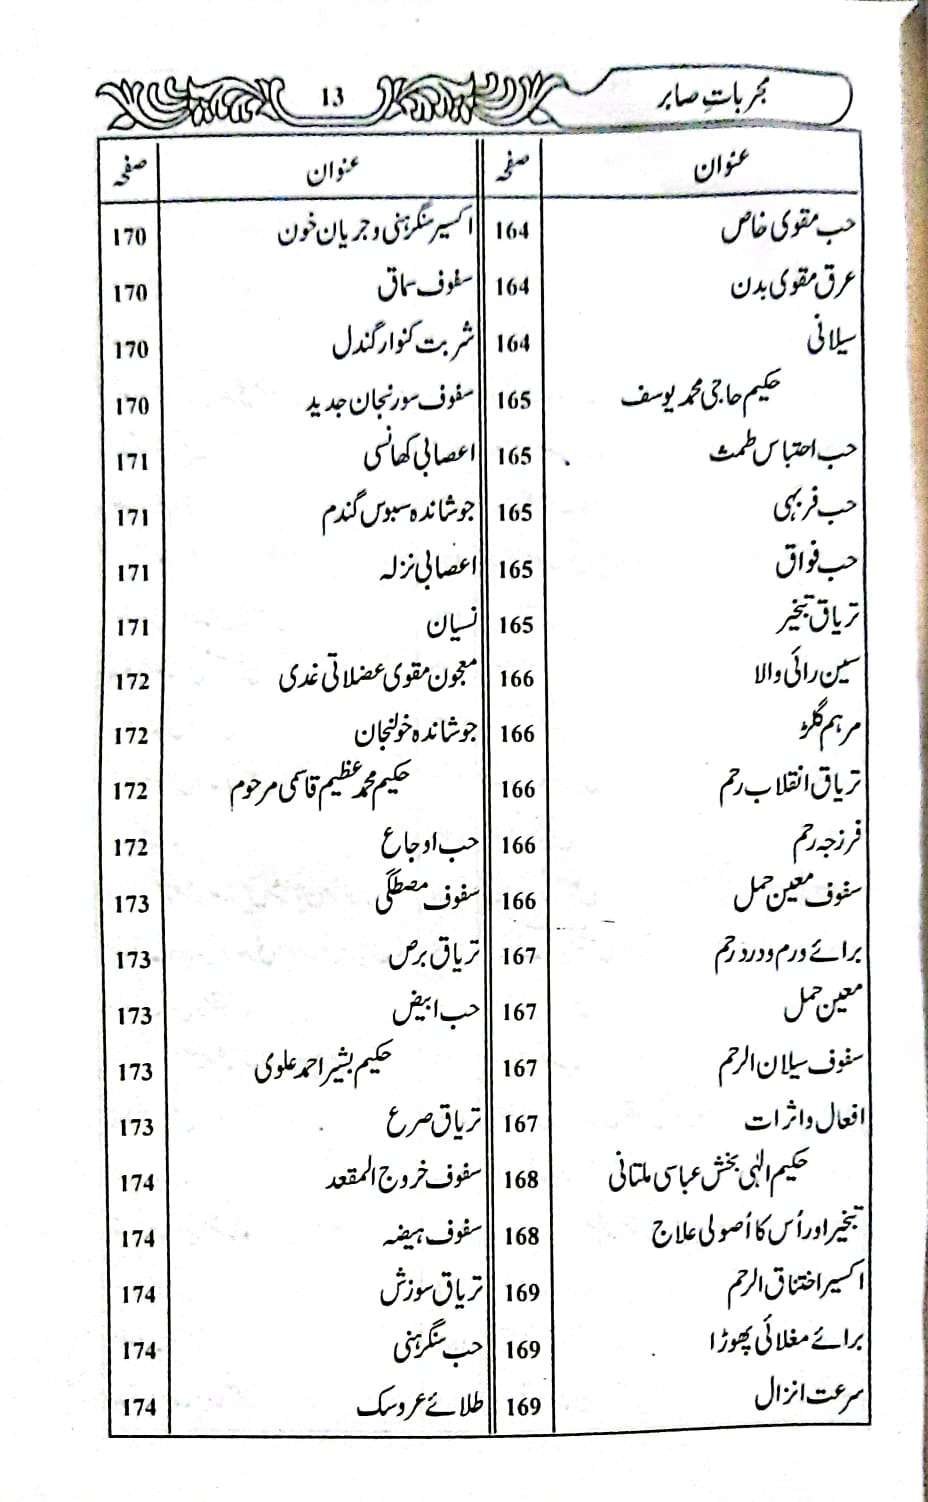 مجرباتِ صابر
13
عنوان صفحہ
حب مقوی خاص 164
عرق مقوی بدن 164
سیلانی 164
حکیم حاجی محمد یوسف 165
حب احتباس طمث 165
حب فربہی 165
حب فواق 165
تریاق تبخیر 165
سین رائی والا 166
مرہم گلڑ 166
تریاق انقلاب رحم 166
فرزجہ رحم 166
سفوف معین حمل 166
برائے ورم و درد رحم 167
معین حمل 167
سفوف سیلان الرحم 167
افعال و اثرات 167
حکیم الٰہی بخش عباسی ملتانی 168
تبخیر اور اُس کا اُصولی علاج 168
اکسیر اختناق الرحم 169
برائے مغلائی پھوڑا 169
سرعت انزال 169
عنوان صفحہ
اکسیر سنگرہنی و جریان خون 170
سفوف سماق 170
شربت کنوار گندل 170
سفوف سورنجان جدید 170
اعصابی کھانسی 171
جوشاندہ سبوس گندم 171
اعصابی نزلہ 171
نسیان 171
معجون مقوی عضلاتی غدی 172
جوشاندہ خولنجان 172
حکیم محمد عظیم قاسمی مرحوم 172
حب اوجاع 172
سفوف مصطگی 173
تریاق برص 173
حب ابیض 173
حکیم بشیر احمد علوی 173
تریاق صرع 173
سفوف خروج المقعد 174
سفوف ہیضہ 174
تریاق سوزش 174
حب سنگرہنی 174
طلائے عروسک 174